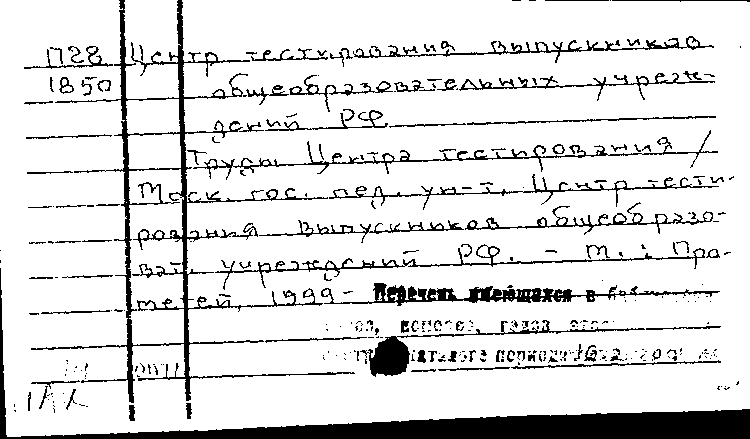 П28 Центр тестирования выпускников
1850 общеобразовательных учреж-
дений РФ
Труды Центра тестирования /
Моск. гос. пед. ун-т, Центр тести-
рования выпускников общеобразо-
ват. учреждений РФ. - М.: Про-
метей, 1999-
Перечень имеющихся в
номеров, годов
каталоге периоди